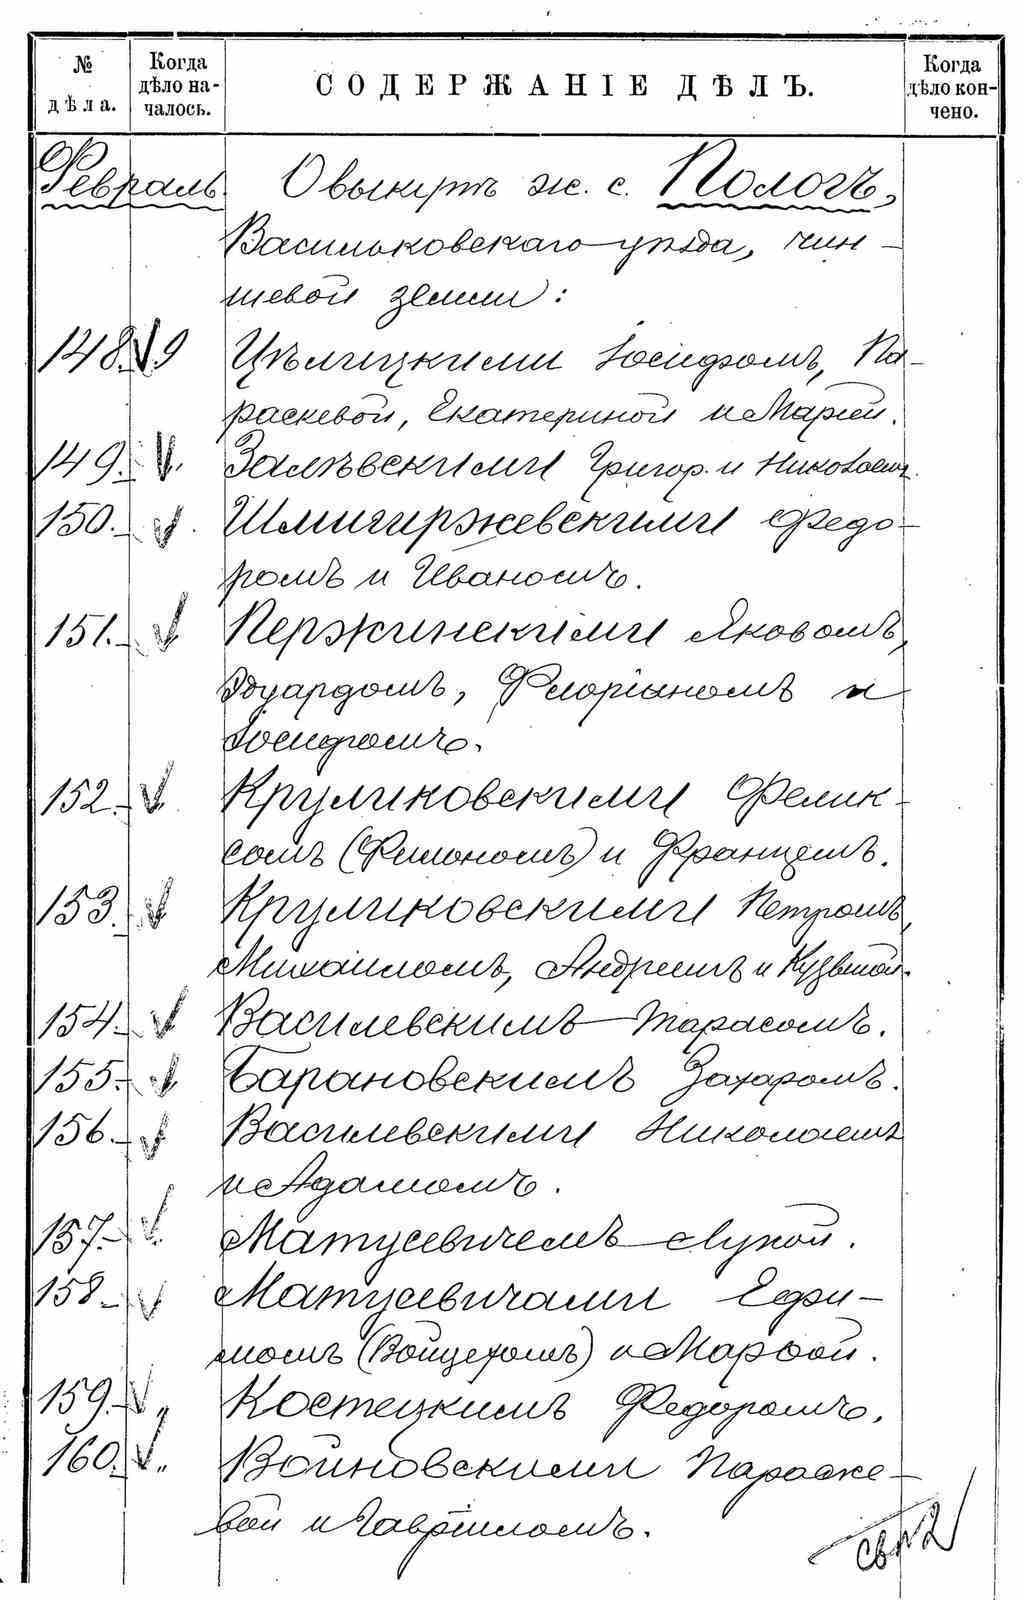 № дѣла.
Когда дѣло началось.
СОДЕРЖАНІЕ ДѢЛЪ.
Когда дѣло кончено.
Февраль. О выкупѣ ж. с. Пологъ,
Васильковскаго уѣзда, чин-
шевой земли:
148. 9 Цѣлицкими Іосифомъ, Па-
раскевой, Екатериной и Маріей.
149. Залѣвскими Григор. и Николаемъ.
150. Шмигиржевскими Федо-
ромъ и Иваномъ.
151. Пержинскими Яковомъ,
Эдуардомъ, Флоріаномъ и
Іосифомъ.
152. Круликовскими Фелик-
сомъ (Филономъ) и Францемъ.
153. Круликовскими Петромъ,
Михаиломъ, Андреемъ и Кузьмой.
154. Василевскимъ Тарасомъ.
155. Барановскимъ Захаромъ.
156. Василевскими Николаемъ
и Адамомъ.
157. Матусевичемъ Лукой.
158. Матусевичами Ефи-
момъ (Войцехомъ) и Марѳой.
159. " Костецкимъ Федоромъ.
160. " Войновскими Параске-
вой и Гавріиломъ.